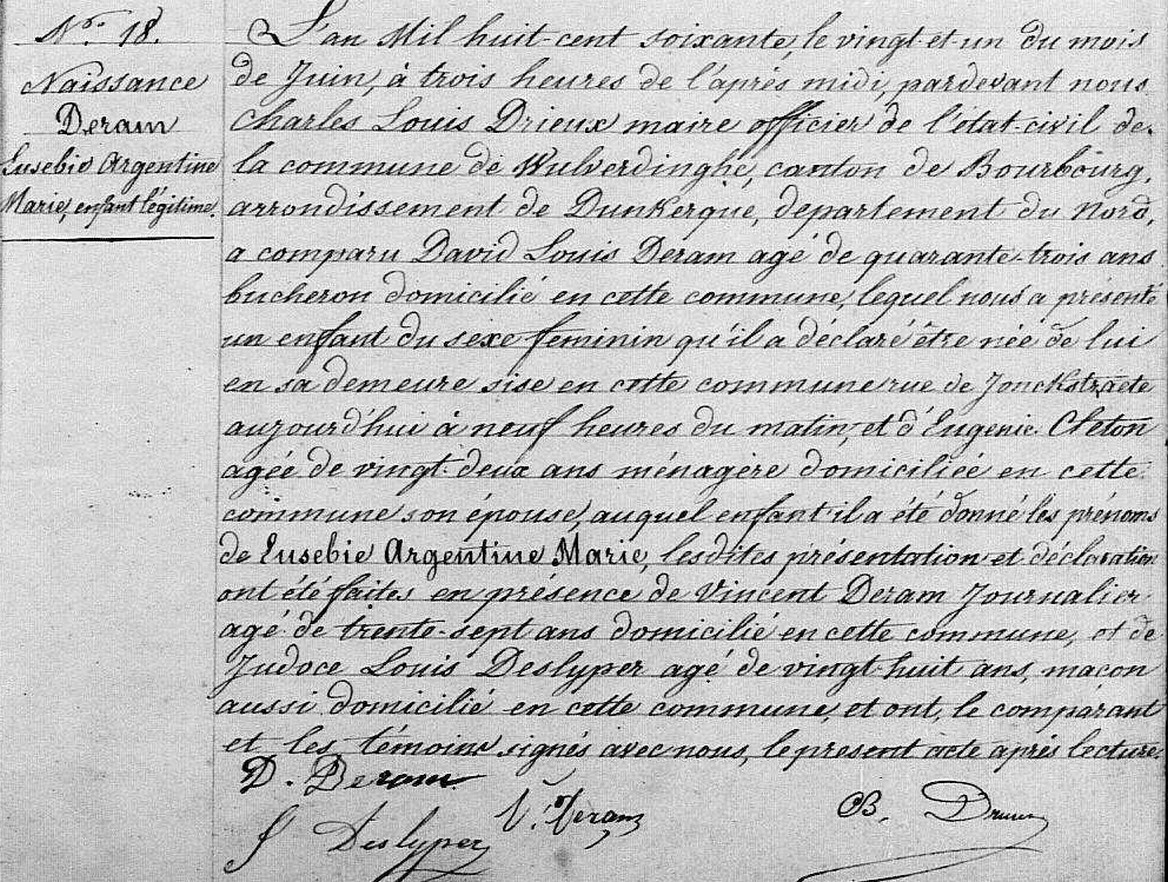 N.º 18.
Naissance
Deram
Eusebie Argentine
Marie, enfant légitime.
L'an Mil huit-cent soixante, le vingt-et-un du mois
de Juin, à trois heures de l'après midi, pardevant nous
Charles Louis Drieux maire officier de l'état-civil de
la commune de Wulverdinghe, canton de Bourbourg,
arrondissement de Dunkerque, departement du Nord,
a comparu David Louis Deram agé de quarante-trois ans
bucheron domicilié en cette commune, lequel nous a présenté
un enfant du sexe feminin qu'il a déclaré être née de lui
en sa demeure sise en cette commune rue de Jonckstraete
aujourd'hui à neuf heures du matin, et d'Eugenie Cleton
agée de vingt-deux ans ménagère domiciliée en cette
commune son épouse, auquel enfant il a été donné les prénoms
de Eusebie Argentine Marie, lesdites présentation et déclaration
ont été faites en présence de Vincent Deram Journalier
agé de trente-sept ans domicilié en cette commune, et de
Judoce Louis Deslyper agé de vingt-huit ans, maçon
aussi domicilié en cette commune, et ont, le comparant
et les témoins signés avec nous, le present acte après lecture.
D. Deram
V. Deram
B. Drieux
J Deslyper